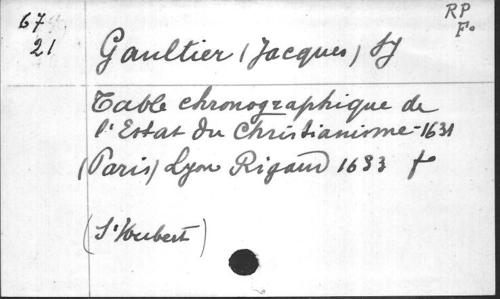 67 RP
21 F°
Gaultier (Jacques) SJ
Table chronographique de
l'Estat du Christianisme-1631
(Paris) Lyon Rigaud 1633 f
(St Hubert)